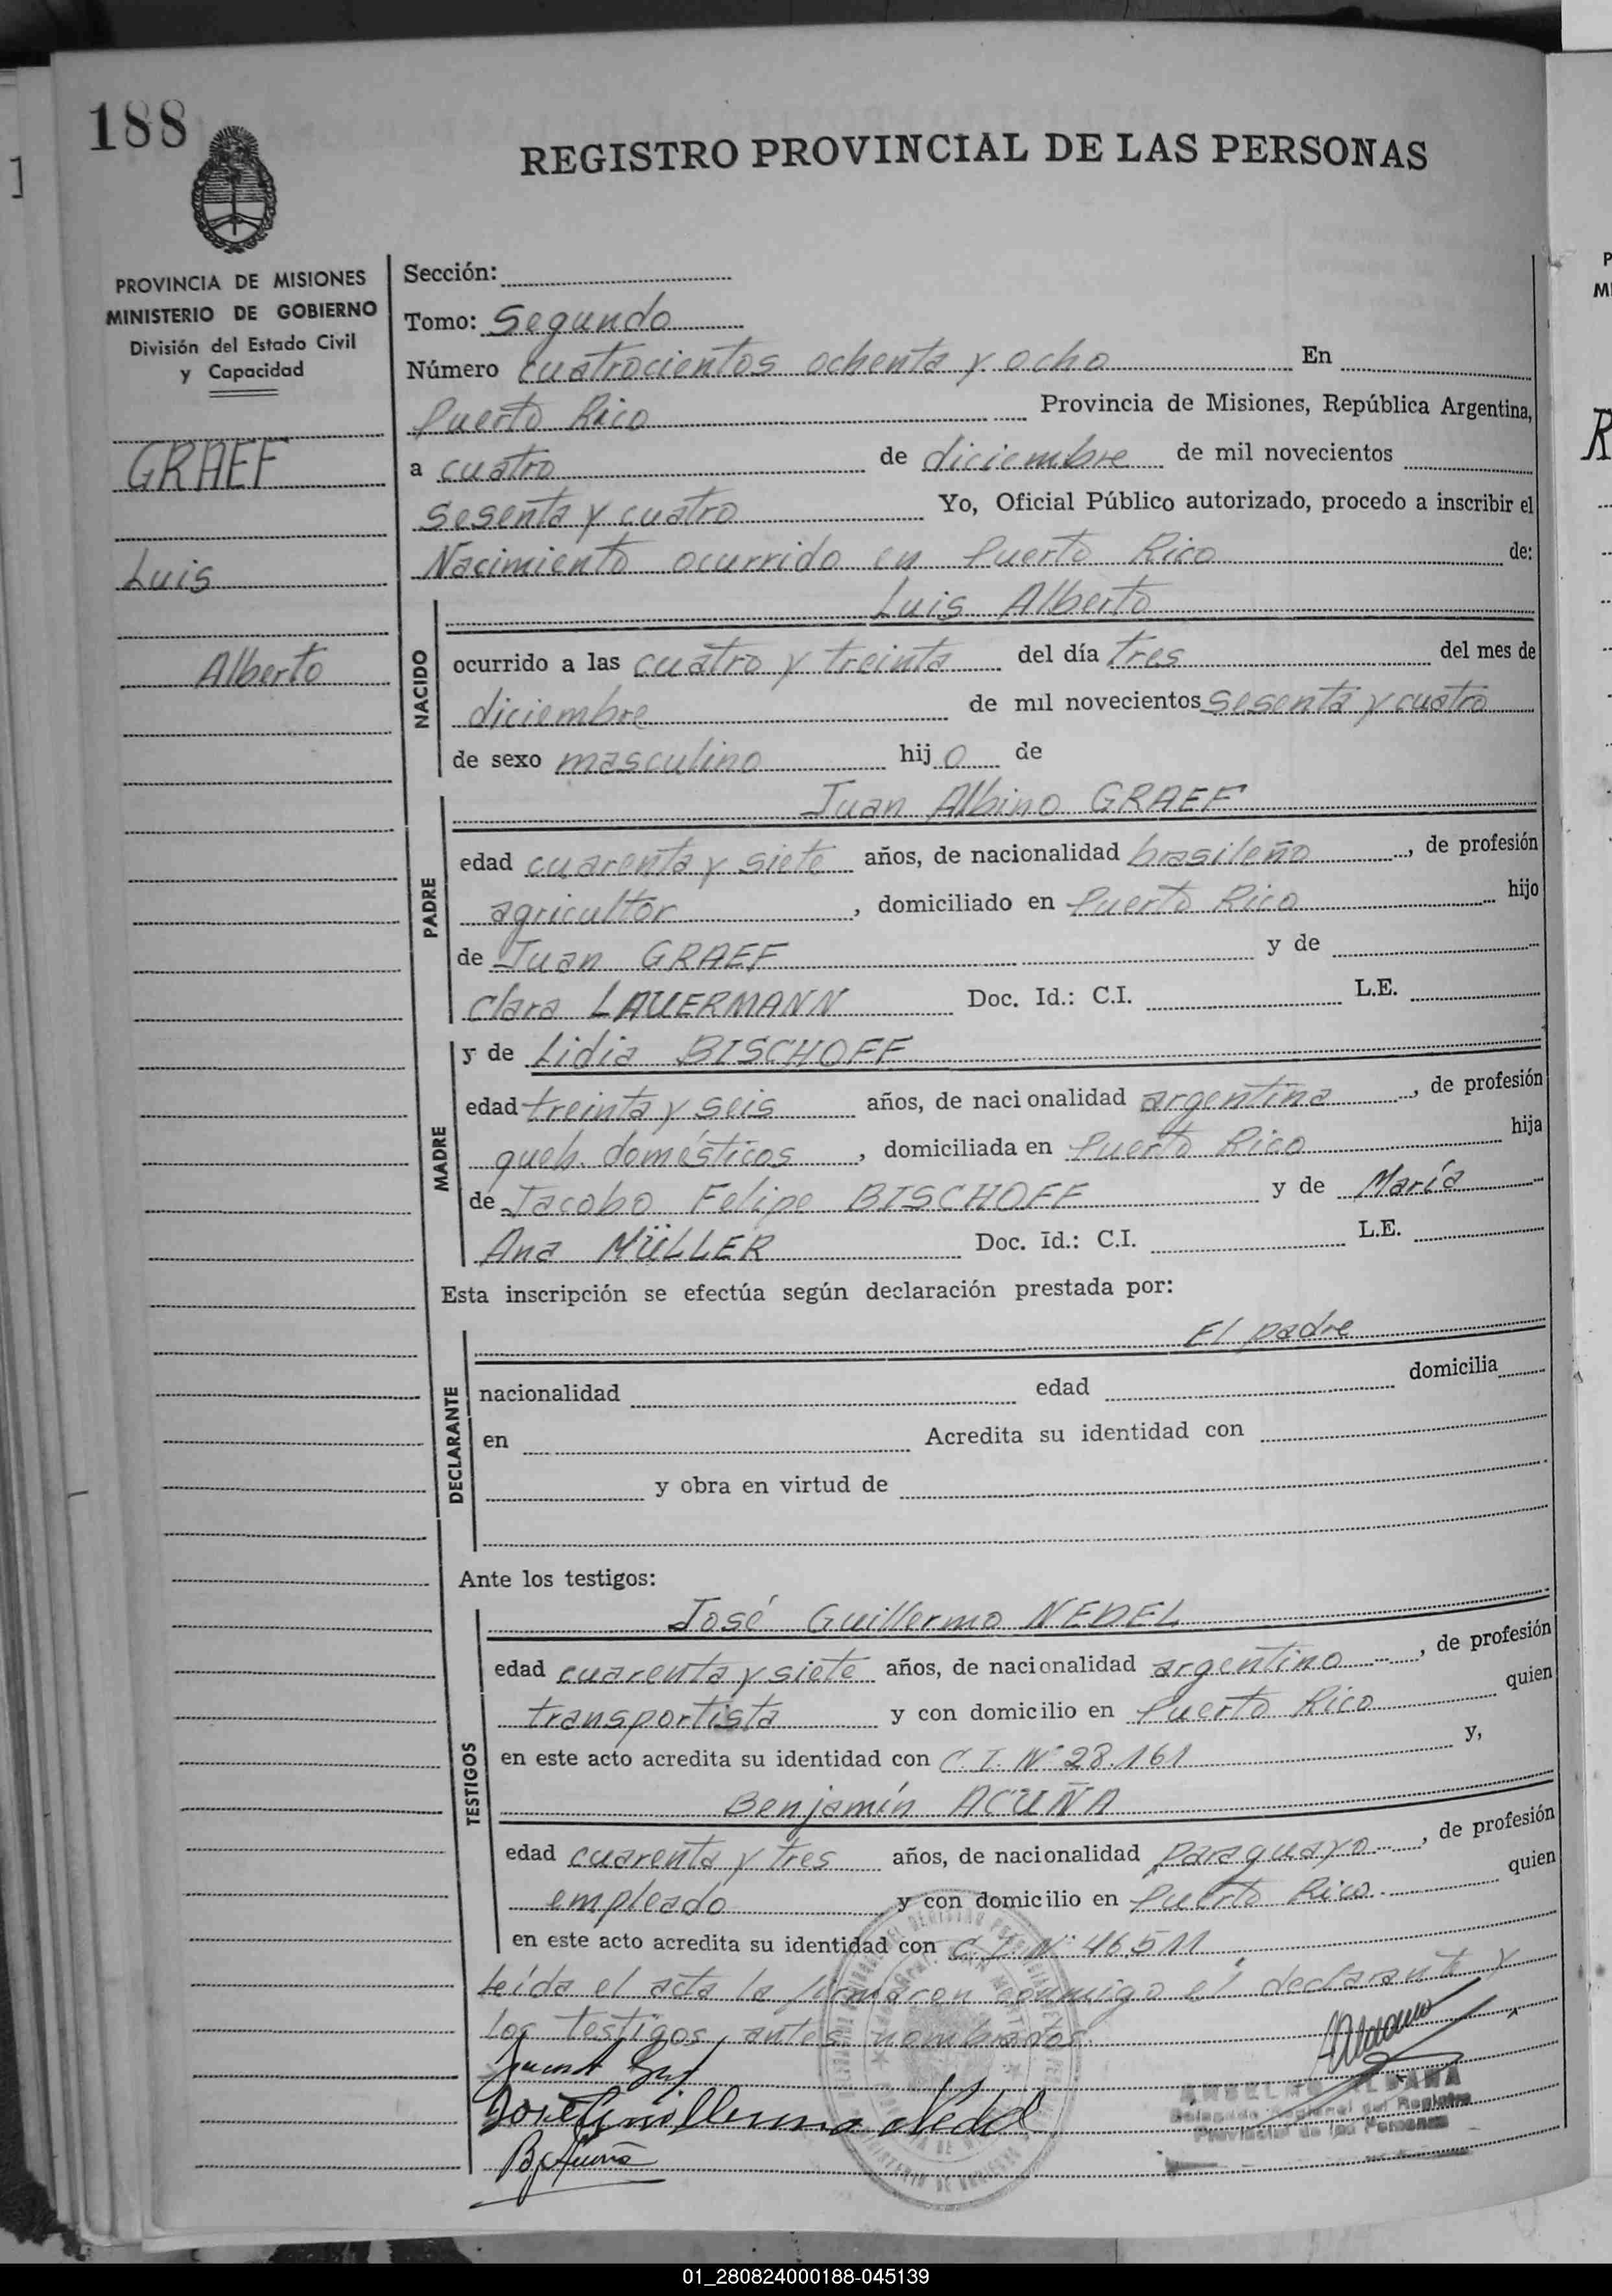 188
REGISTRO PROVINCIAL DE LAS PERSONAS
PROVINCIA DE MISIONES
MINISTERIO DE GOBIERNO
División del Estado Civil
y Capacidad
GRAEF
Luis
Alberto
Sección:
Tomo: Segundo
Número cuatrocientos ochenta y ocho En
Puerto Rico Provincia de Misiones, República Argentina,
a cuatro de diciembre de mil novecientos
sesenta y cuatro Yo, Oficial Público autorizado, procedo a inscribir el
Nacimiento ocurrido en Puerto Rico de:
NACIDO
Luis Alberto
ocurrido a las cuatro y treinta del día tres del mes de
diciembre de mil novecientos sesenta y cuatro
de sexo masculino hijo de
PADRE
Juan Albino GRAEF
edad cuarenta y siete años, de nacionalidad brasileño, de profesión
agricultor, domiciliado en Puerto Rico hijo
de Juan GRAEF y de
Clara LAUERMANN Doc. Id.: C.I. L.E.
MADRE
y de Lidia BISCHOFF
edad treinta y seis años, de nacionalidad argentina, de profesión
queh. domésticos, domiciliada en Puerto Rico hija
de Jacobo Felipe BISCHOFF y de María
Ana MÜLLER Doc. Id.: C.I. L.E.
Esta inscripción se efectúa según declaración prestada por:
DECLARANTE
El padre
nacionalidad edad domicilia
en Acredita su identidad con
y obra en virtud de
Ante los testigos:
TESTIGOS
José Guillermo NEDEL
edad cuarenta y siete años, de nacionalidad argentino, de profesión
transportista y con domicilio en Puerto Rico quien
en este acto acredita su identidad con C.I. Nº 28.161 y,
Benjamín ACUÑA
edad cuarenta y tres años, de nacionalidad paraguayo, de profesión
empleado y con domicilio en Puerto Rico quien
en este acto acredita su identidad con C.I. Nº 46.511.
Leída el acta la firmaron conmigo el declarante y
los testigos, antes nombrados.
José Guillermo Nedel
B. Acuña
ANSELMO ALDANA
Delegado Regional del Registro
Provincial de las Personas
01_280824000188-045139